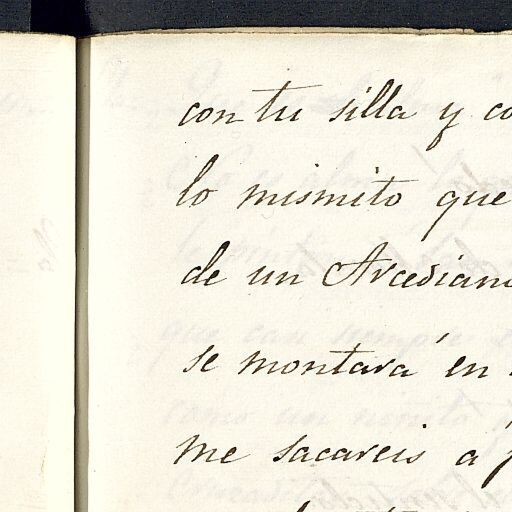 con tu silla y co
lo mismito que
de un Arcedian
se montará en
me sacareis a